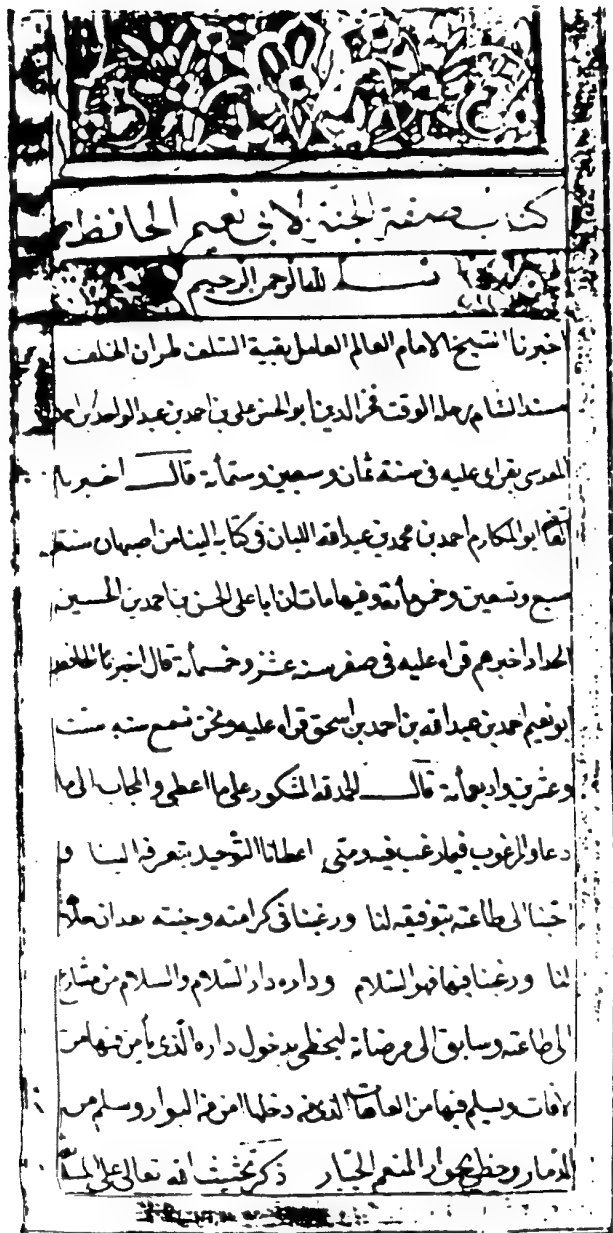 كتاب صفة الجنة لابي نعيم الحافظ
بسم الله الرحمن الرحيم
اخبرنا الشيخ الامام العالم العامل بقية السلف الخلف
مسند الشام رحلة الوقت فخر الدين ابو الحسن علي بن احمد بن عبد الواحد بن احمد
المقدسي بقراى عليه في سنة ثمان وسبعين وستمأة قال اخبرنا
ابو المكارم احمد بن محمد بن عبد الله اللبان في كتابه الينا من اصبهان سنة
سبع وتسعين وخمسمأة وفيها مات ان ابا على الحسن بن احمد بن الحسين
الحداد اخبرهم قراة عليه في صفر سنة عشر وخمسمأة قال اخبرنا الحافظ
ابو نعيم احمد بن عبد الله بن احمد بن اسحق قراة عليه ونحن نسمع سنة ست
وعشرين واربعمأة قال الحمد لله المشكور على ما اعطى والمجاب الى ما
دعا والمرغوب فيما رغب فيه ومنى اعطانا التوحيد بتعرفه الينا و
اجبنا الى طاعته بتوفيقه لنا ورغبنا في كرامته وجنته بعد ان
لنا ورغبنا فيها فهو السلام وداره دار السلام والسلام من
الى طاعته وسابق الى مرضاته ليحظى بدخول داره الذي يأمن فيها من
لافات ويسلم فيها من العاهات الذي من دخلها امن من البوار وسلم من
الدمار وحظي بجوار المنعم الجبار ذكر تحثيث الله تعالى على